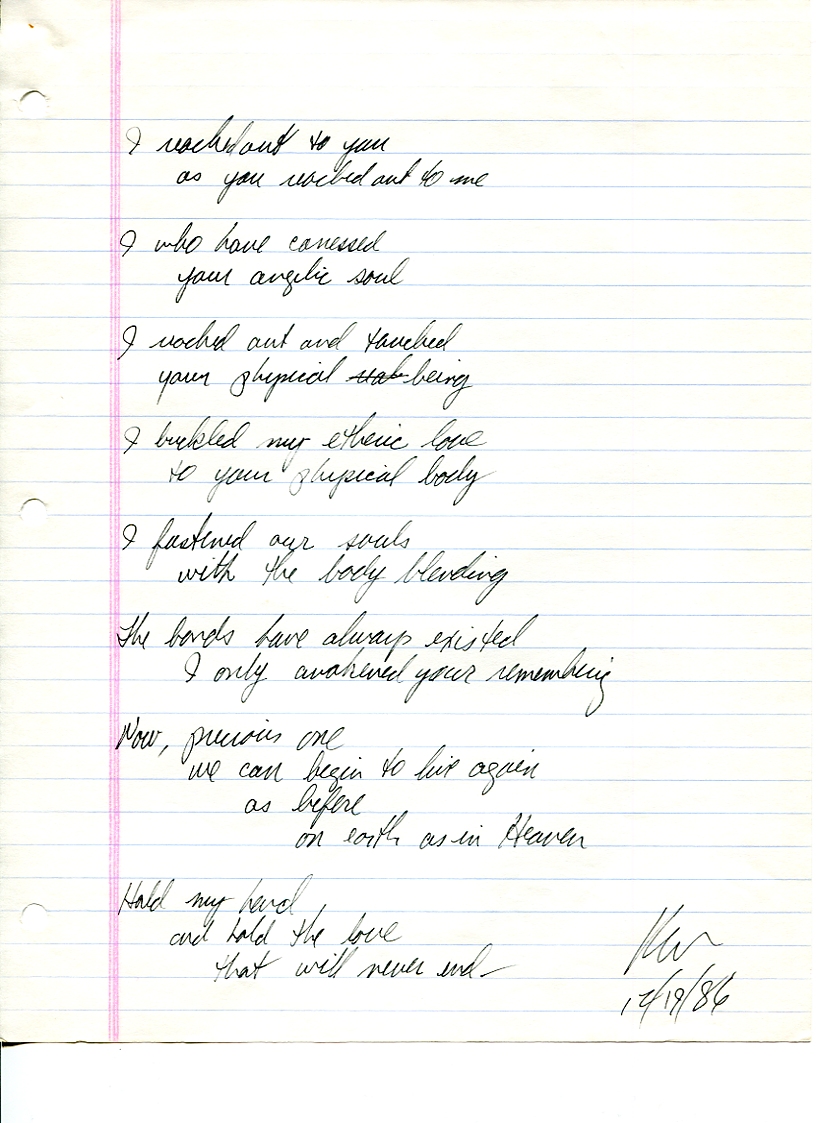 I reached out to you
as you reached out to me
I who have caressed
your angelic soul
I reached out and touched
your physical being
I buckled my etheric love
to your physical body
I fastened our souls
with the body blending
The bonds have always existed
I only awakened your remembering
Now, precious one
we can begin to live again
as before
on earth as in Heaven
Hold my hand
and hold the love
that will never end
12/19/86